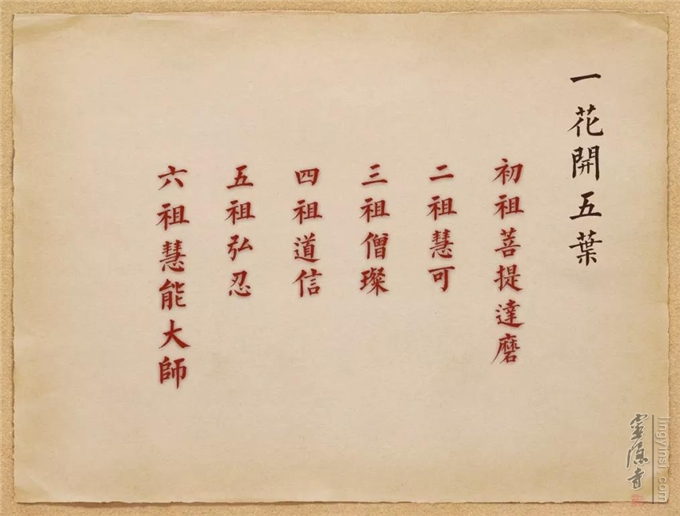 一花開五葉
初祖菩提達磨
二祖慧可
三祖僧璨
四祖道信
五祖弘忍
六祖慧能大師
靈隱寺
lingyinsi.com